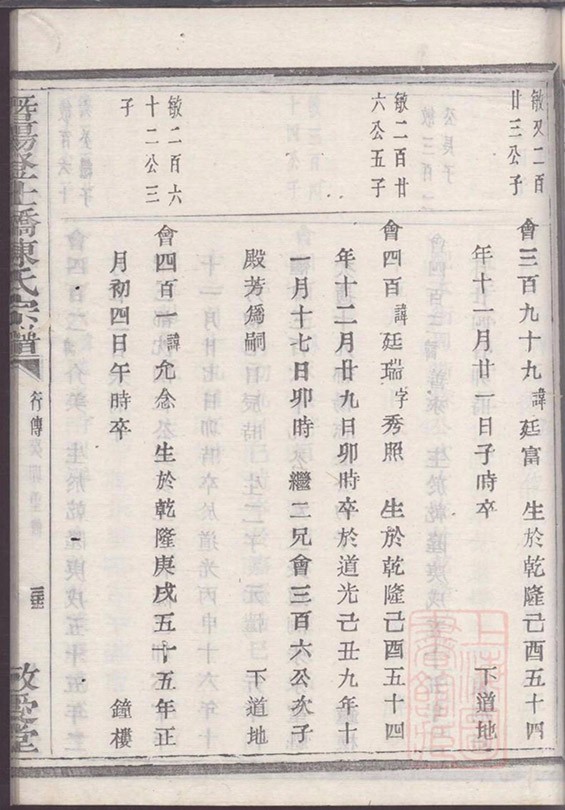 敏又二百
廿三公子
會三百九十九諱廷富　生於乾隆己酉五十四
年十一月廿一日子時卒　下道地
敏二百廿
六公五子
會四百諱廷瑞字秀照　生於乾隆己酉五十四
年十二月廿九日卯時卒於道光己丑九年十
一月十七日卯時繼二兄會三百六公次子
殿芳爲嗣　下道地
敏二百六
十二公三
子
會四百一諱允念生於乾隆庚戌五十五年正
月初四日午時卒　鐘樓
暨陽登仕橋陳氏宗譜
行傳
敬愛堂